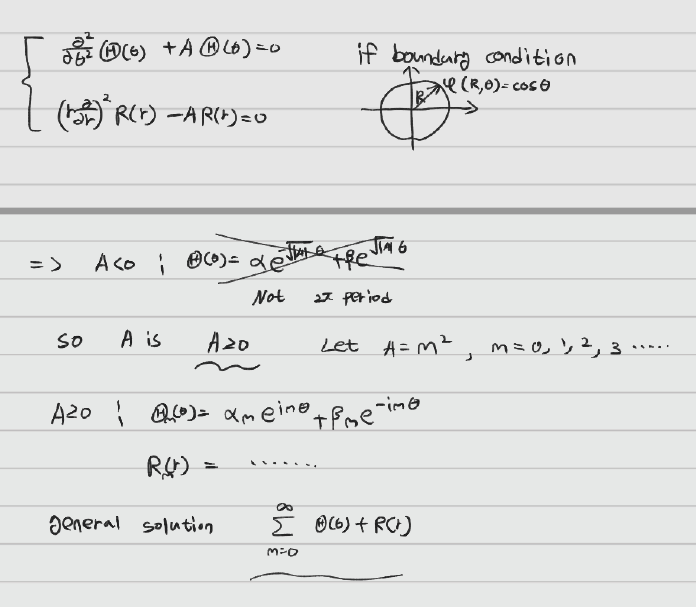 ∂²/∂θ² Θ(θ) + A Θ(θ) = 0
(r ∂/∂r)² R(r) − A R(r) = 0
if boundary condition
φ(R,θ) = cosθ
R
=> A<0 ; Θ(θ) = αe^{-√|A| θ} + βe^{√|A| θ}
Not 2π period
so A is A≥0 Let A = m² , m = 0, 1, 2, 3 .....
A≥0 ; Θₘ(θ) = αₘ e^{imθ} + βₘ e^{-imθ}
Rₘ(r) = .......
general solution ∑_{m=0}^{∞} Θ(θ) + R(r)